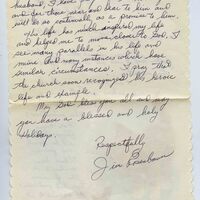 husband, I have
and for those near and dear to him and
just as so continually, as a promise to him.
His life has much inspired my life
and helped me to move closer to God. I
see many parallels in his life and
mine and many instances which have
similar circumstances. I pray that
the church soon recognizes his heroic
life and example.
May God bless you all and may
you have a blessed and holy
Holidays.
Respectfully
Jim